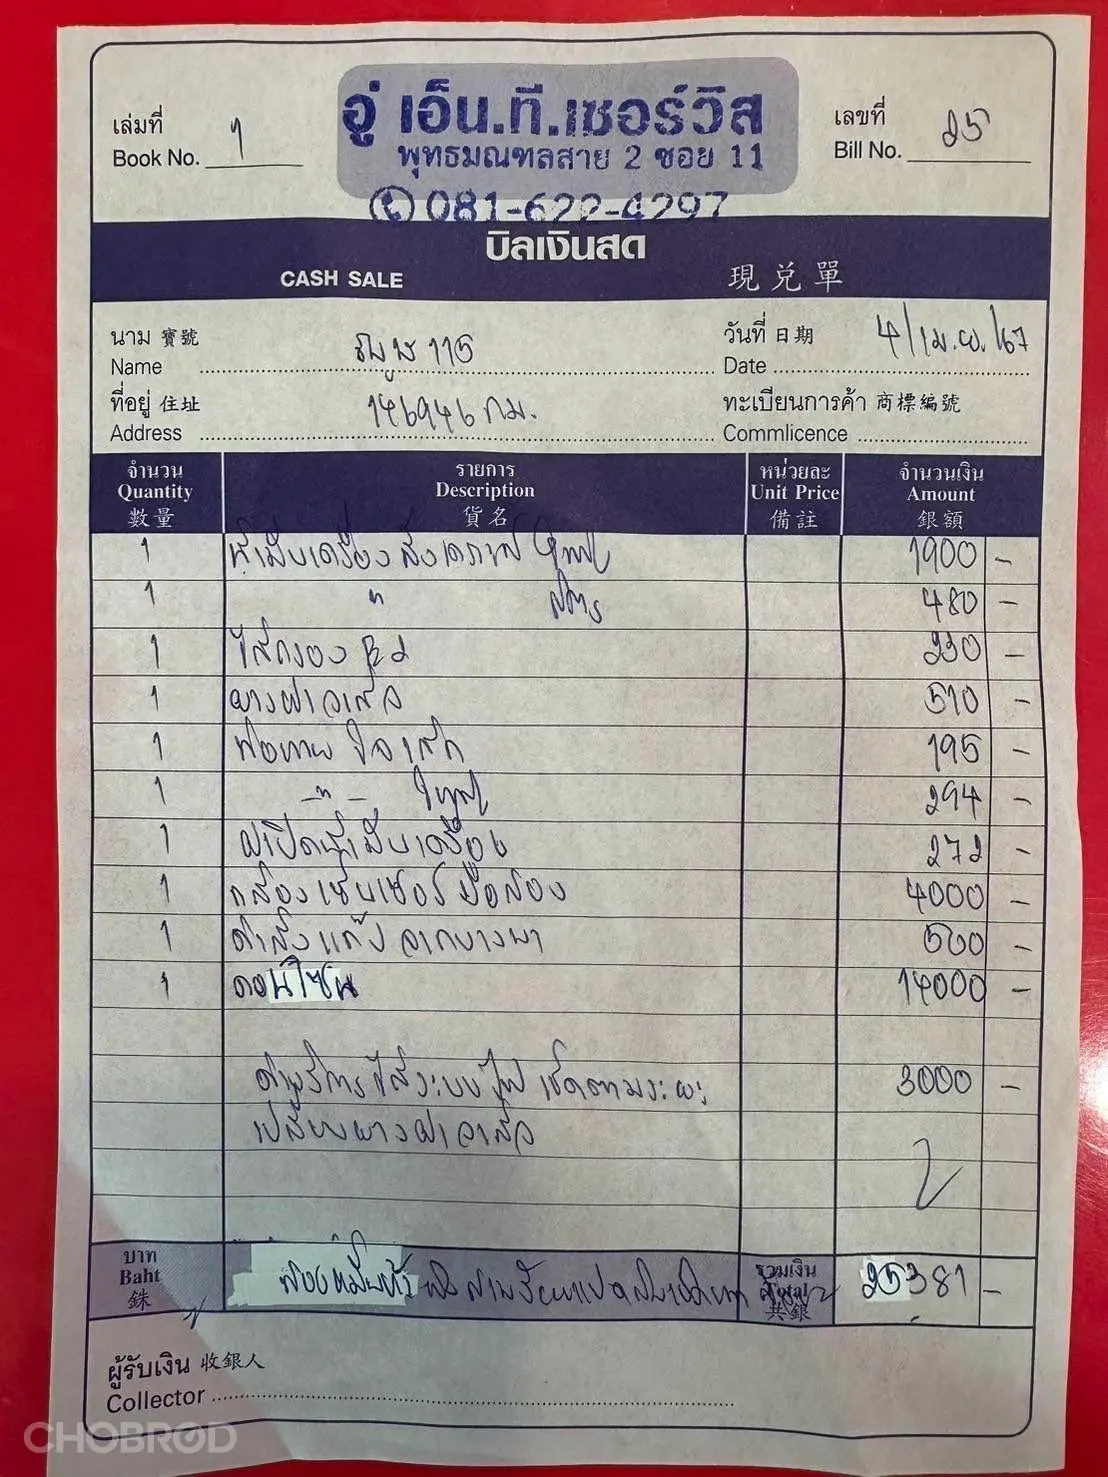 อู่ เอ็น.ที.เซอร์วิส
พุทธมณฑลสาย 2 ซอย 11
081-622-4297
เล่มที่
Book No. 1
เลขที่
Bill No. 25
บิลเงินสด
CASH SALE 現兌單
นาม 寶號
Name
115
วันที่ 日期
Date 4/เม.ย./67
ที่อยู่ 住址
Address
146946 กม.
ทะเบียนการค้า 商標編號
Commlicence
จำนวน Quantity 數量
รายการ Description 貨名
หน่วยละ Unit Price 備註
จำนวนเงิน Amount 銀額
1 น้ำมันเครื่อง สังเคราะห์ ใหญ่ 1900 -
1 " ลิตร 480 -
1 ไส้กรอง 230 -
1 ยางฝาวาล์ว 510 -
1 195 -
1 -"- ใหญ่ 294 -
1 ฝาปิดน้ำมันเครื่อง 272 -
1 กล่องเซ็นเซอร์ มือสอง 4000 -
1 ค่าส่ง 500 -
1 คอนโซน 14000 -
ค่าบริการ ไล่ระบบไฟ เช็คตามระยะ 3000 -
เปลี่ยนยางฝาวาล์ว
บาท Baht 銖
สองหมื่นห้าพันสามร้อยแปดสิบเอ็ดบาท
รวมเงิน Total 共銀
25381 -
ผู้รับเงิน 收銀人
Collector
CHOBROD